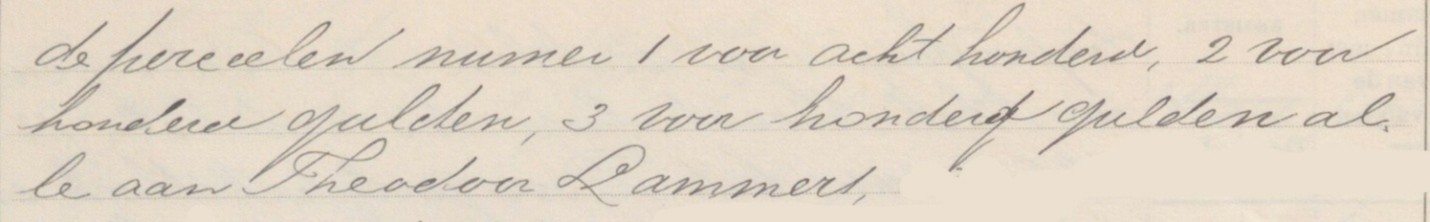 de percelen numer 1 voor acht honderd, 2 voor
honderd gulden, 3 voor honderd gulden al-
le aan Theodoor Lammers,